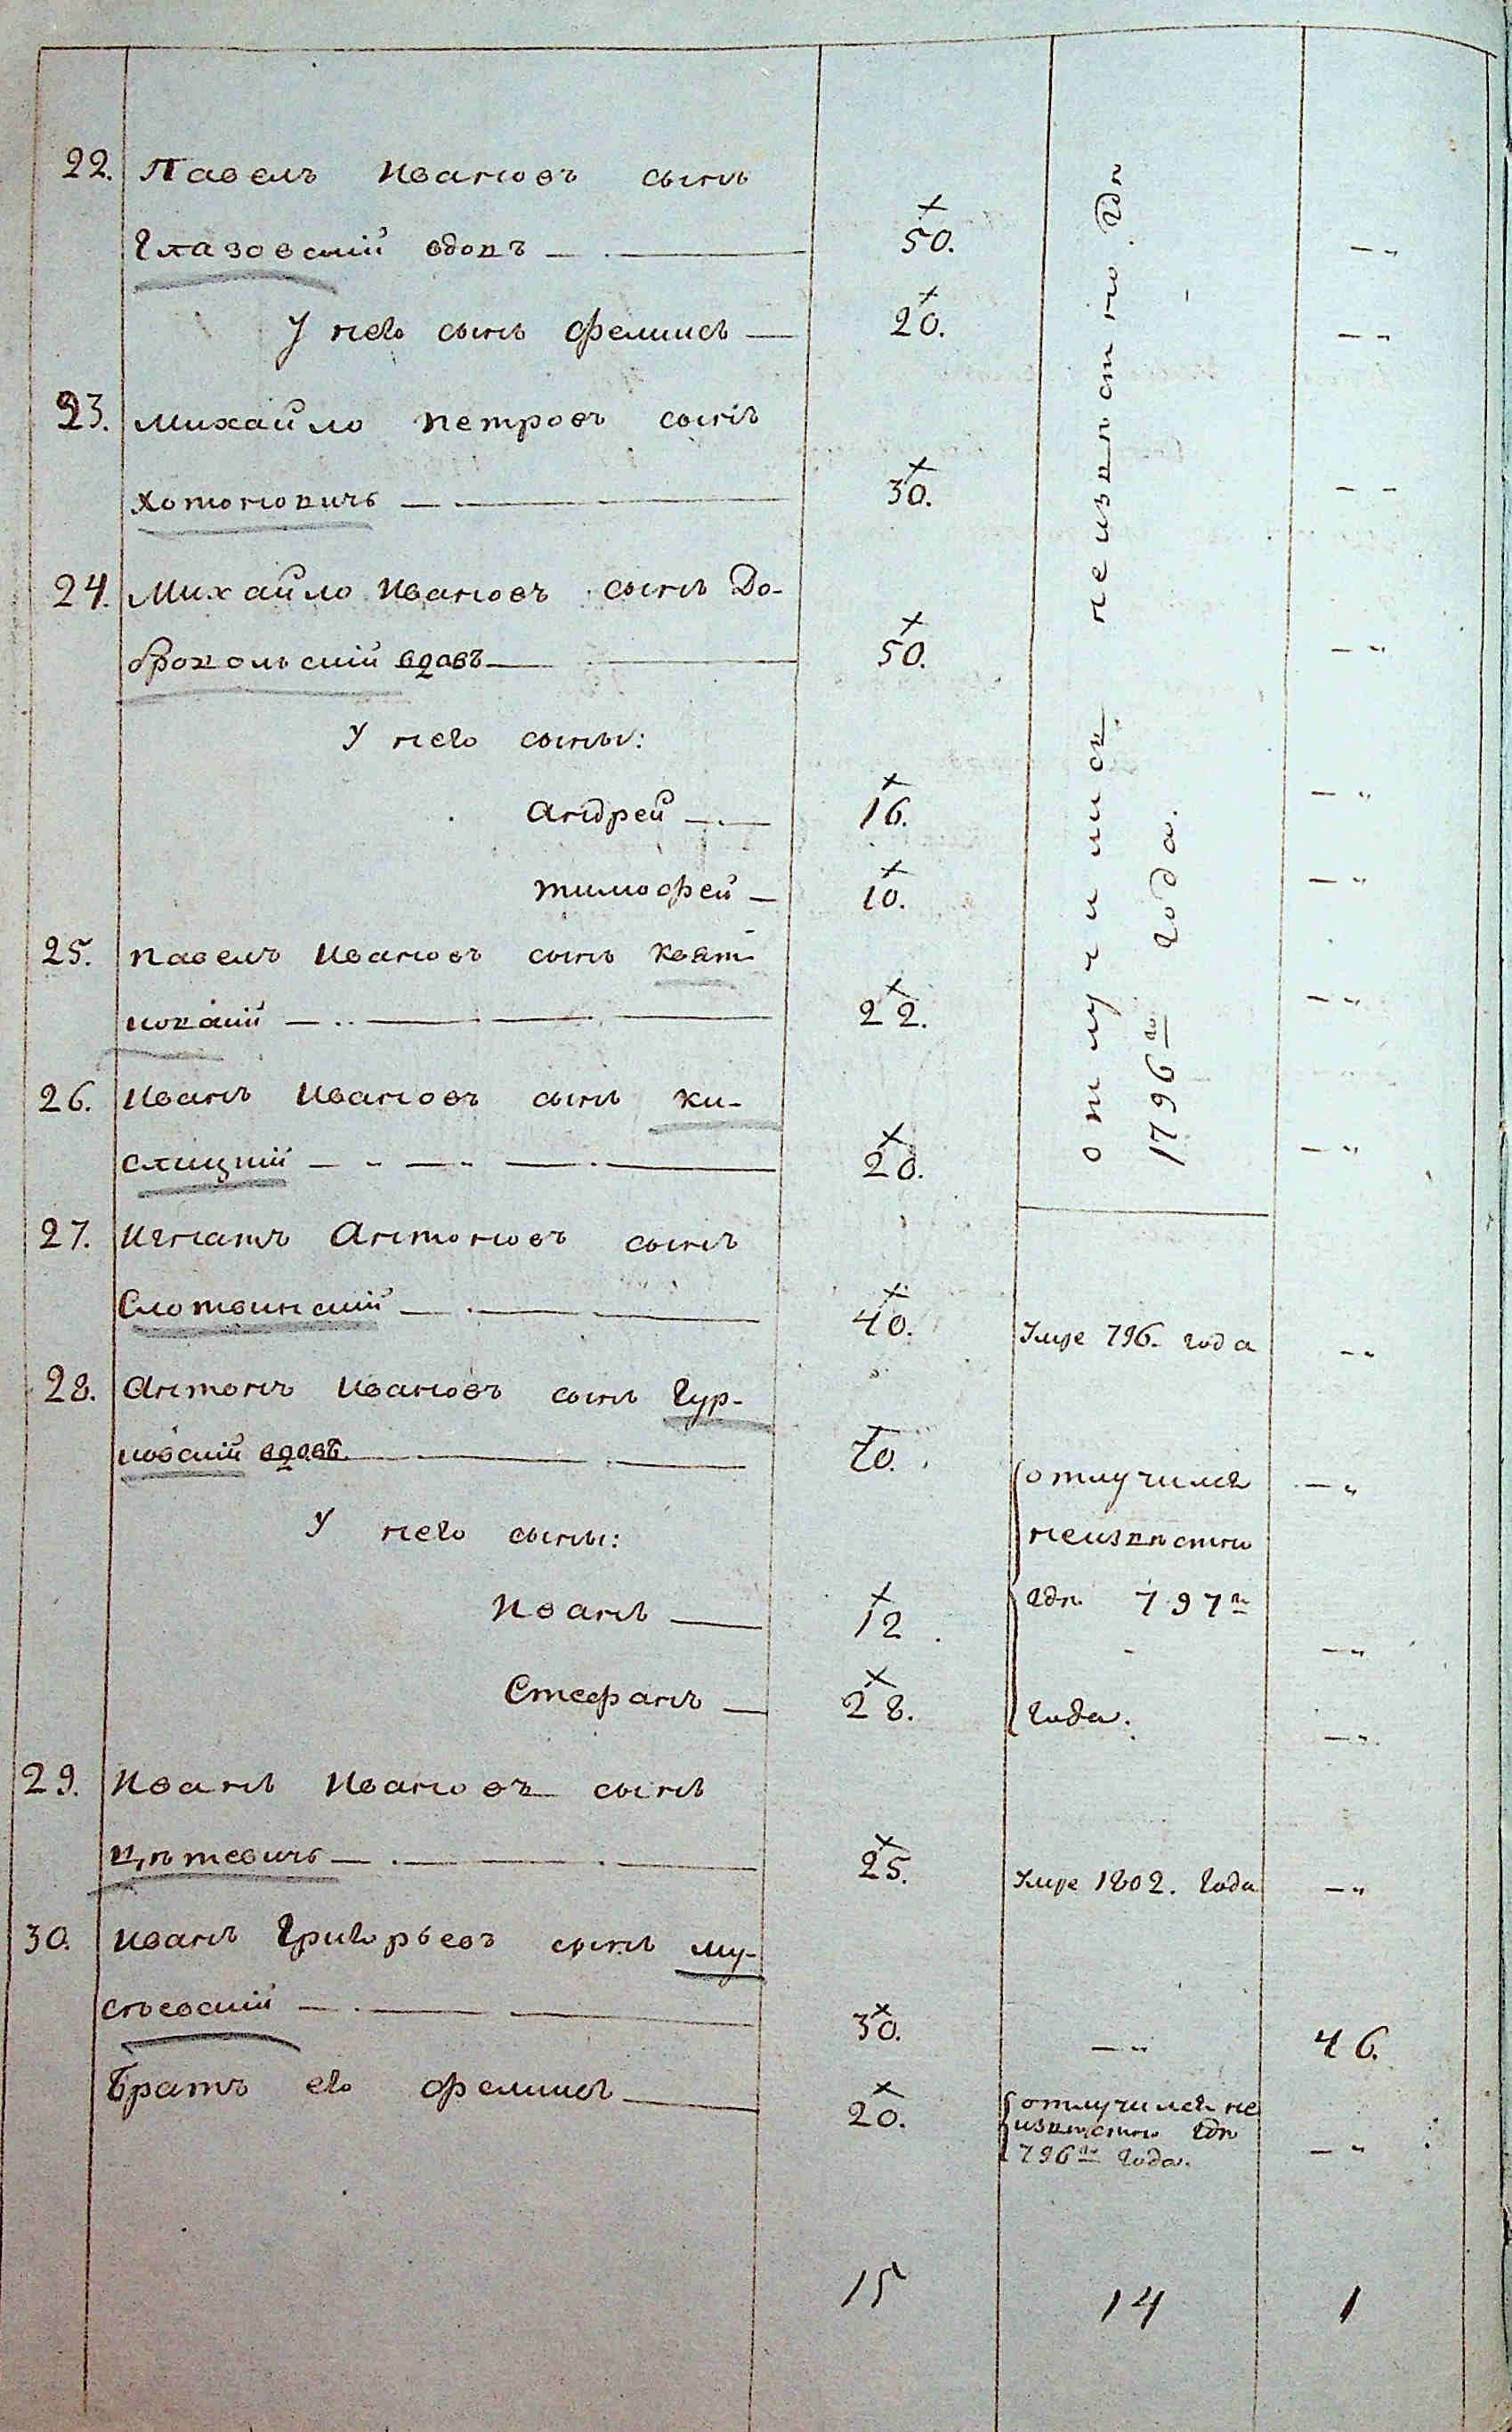 22. Павелъ Ивановъ сынъ
Глазовскій вдовъ — 50. — „
У него сынъ Феликсъ — 20. — „
23. Михайло Петровъ сынъ
Хотоновичь — 30. — „
24. Михайло Ивановъ сынъ До-
бровольскій вдовъ — 50. — „
У него сыны:
Андрей — 16. — „
Тимофей — 10. — „
25. Павелъ Ивановъ сынъ Квят-
ковскій — 22. — „
26. Иванъ Ивановъ сынъ Ки-
слицкій — 20. — „
отлучились неизвѣстно гдѣ
1796го года.
27. Игнатъ Антоновъ сынъ
Слотвинскій — 40. Умре 796. года — „
28. Антонъ Ивановъ сынъ Гур-
ковскій вдовъ — 70. отлучился — „
У него сыны: неизвѣстно
Иванъ — 12. гдѣ 797го — „
Стефанъ — 28. года. — „
29. Иванъ Ивановъ сынъ
Цѣтевичь — 25. Умре 1802. года — „
30. Иванъ Григорьевъ сынъ Му-
сѣевскій — 30. — „ 46.
Братъ его Феликсъ — 20. отлучился не
извѣстно гдѣ
796го года. — „
15 14 1